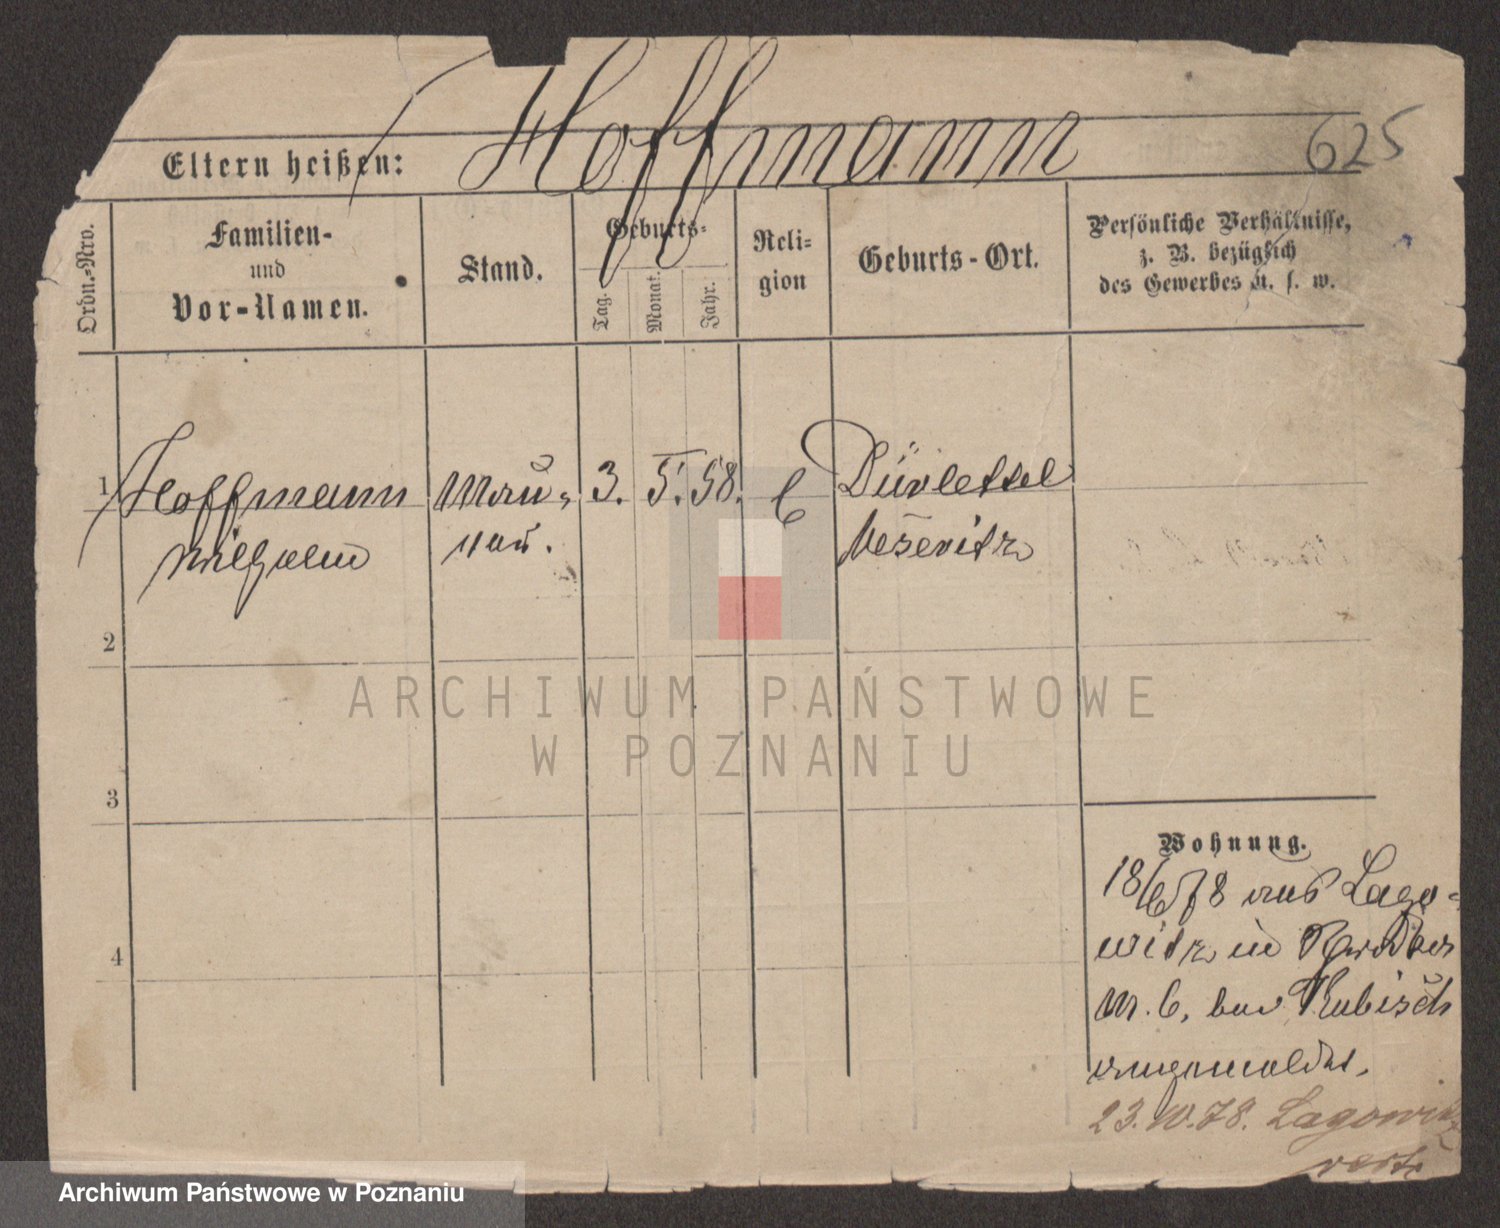 Hoffmann
625
Eltern heißen:
Ordn.-Nro.
Familien-
und
Vor-Namen.
Stand.
Geburts-
Tag.
Monat.
Jahr.
Reli-
gion
Geburts-Ort.
Persönliche Verhältnisse,
z. B. bezüglich
des Gewerbes u. s. w.
1 Hoffmann Mau- 3. 5. 58.
Wilhelm rer.
Meseritz
2
3
4
Wohnung.
18/6 78 aus Lago-
witz in
N. 6, bei Kubisch
angemeldet.
23. 10. 78. Lagowitz
ARCHIWUM PAŃSTWOWE
W POZNANIU
Archiwum Państwowe w Poznaniu